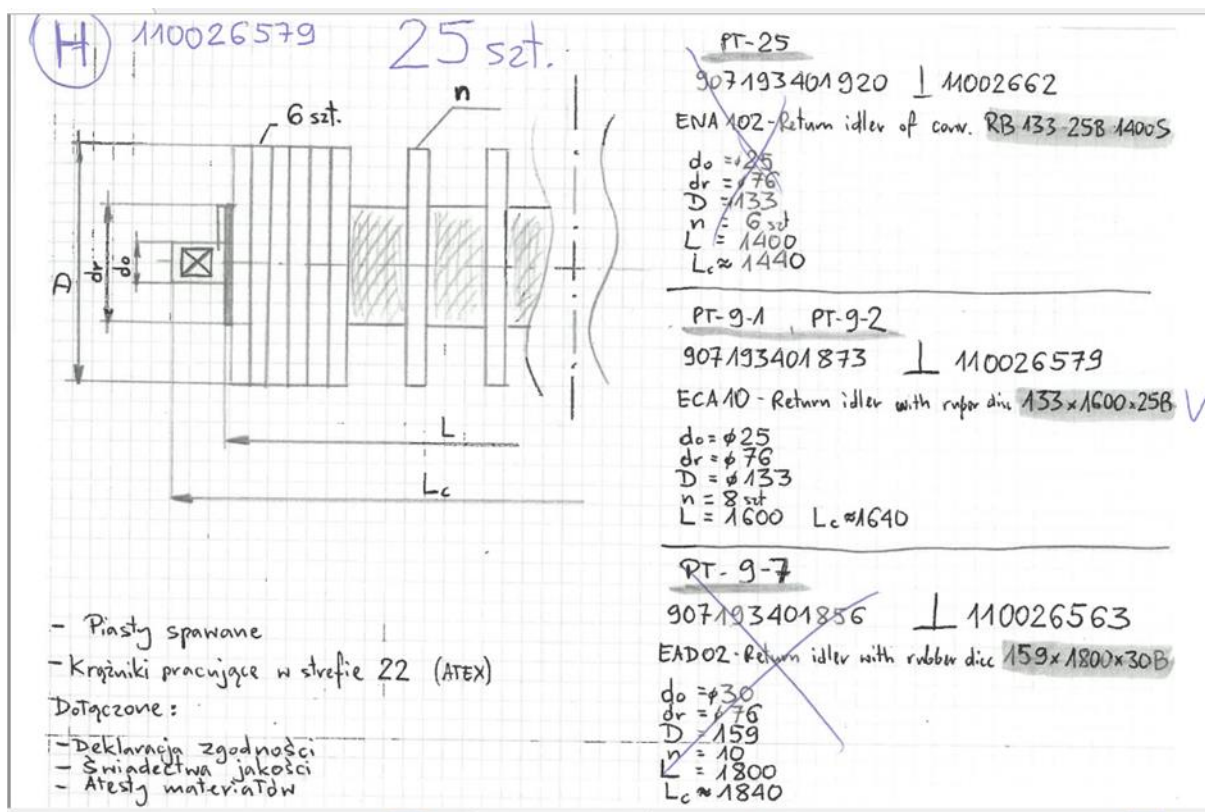 H 110026579 25 szt.
6 szt.
n
D
dr
do
L
Lc
- Piasty spawane
- Krążniki pracujące w strefie 22 (ATEX)
Dołączone:
- Deklaracja zgodności
- Świadectwa jakości
- Atesty materiałów
PT-25
907193401920 ⊥ 11002662
ENA 102 - Return idler of conv. RB-133-25B-1400S
do = ϕ25
dr = ϕ76
D = 133
n = 6 szt
L = 1400
Lc ≈ 1440
PT-9-1 PT-9-2
907193401873 ⊥ 110026579
ECA10 - Return idler with ruber disc 133x1600x25B V
do = ϕ25
dr = ϕ76
D = ϕ133
n = 8 szt
L = 1600 Lc ≈ 1640
PT-9-7
907193401856 ⊥ 110026563
EAD02 - Return idler with rubber disc 159x1800x30B
do = ϕ30
dr = ϕ76
D = 159
n = 10
L = 1800
Lc ≈ 1840